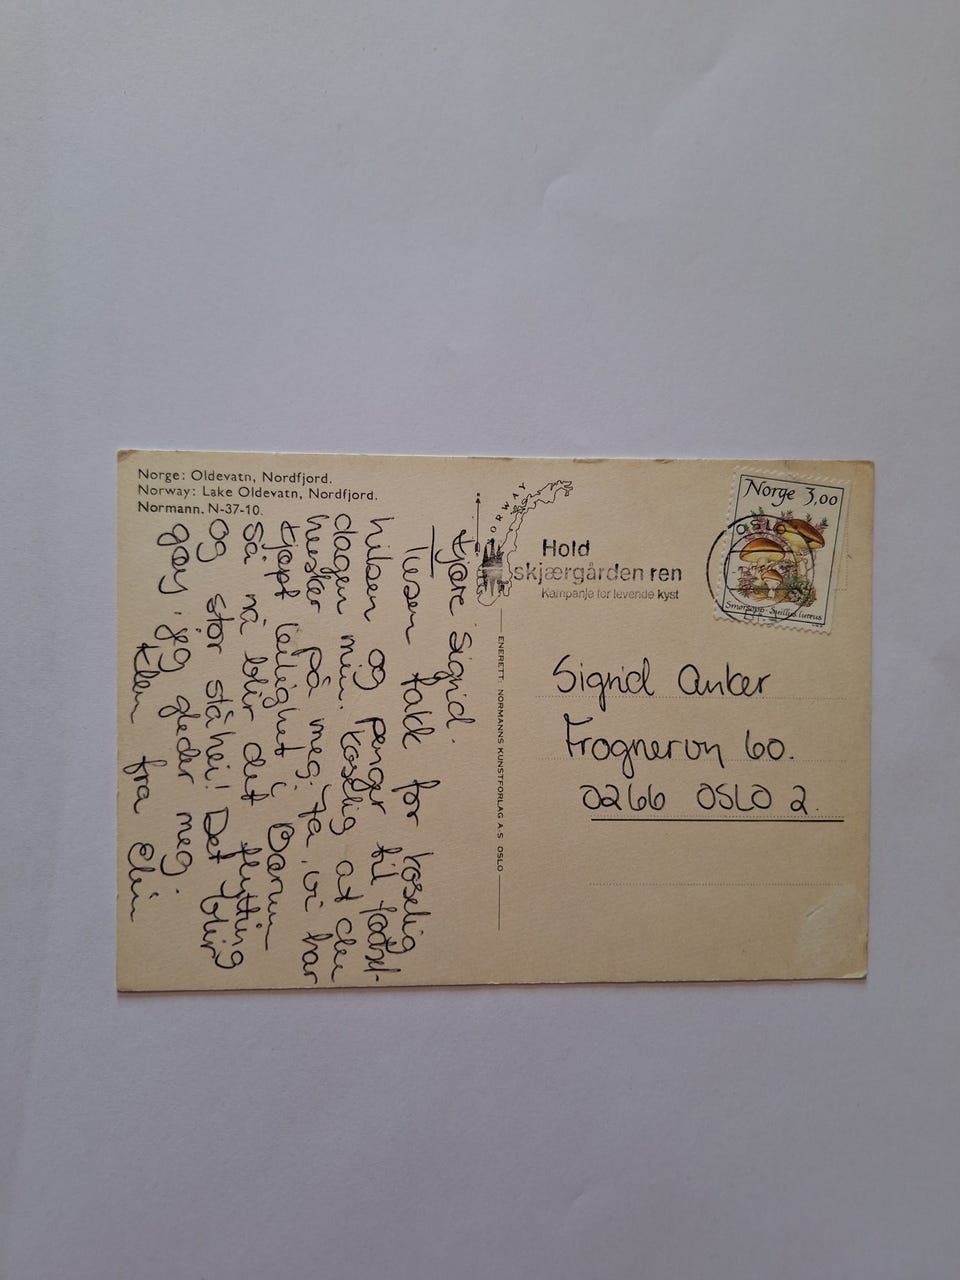 Norge: Oldevatn, Nordfjord.
Norway: Lake Oldevatn, Nordfjord.
Normann. N-37-10.
Kjære Sigrid.
Tusen takk for koselig
hilsen og penger til fødsel-
dagen min. Koselig at du
husker på meg. Ja, vi har
kjøpt leilighet i Bærum
så nå blir det flytting
og stor ståhei! Det blir
gøy. jeg gleder meg.
Klem fra Elin
ENERETT: NORMANNS KUNSTFORLAG A-S OSLO
NORWAY
Hold
skjærgården ren
Kampanje for levende kyst
Norge 3,00
OSLO
Smørsopp · Suillus luteus
Sigrid Anker
Frognervn 60.
0266 OSLO 2.